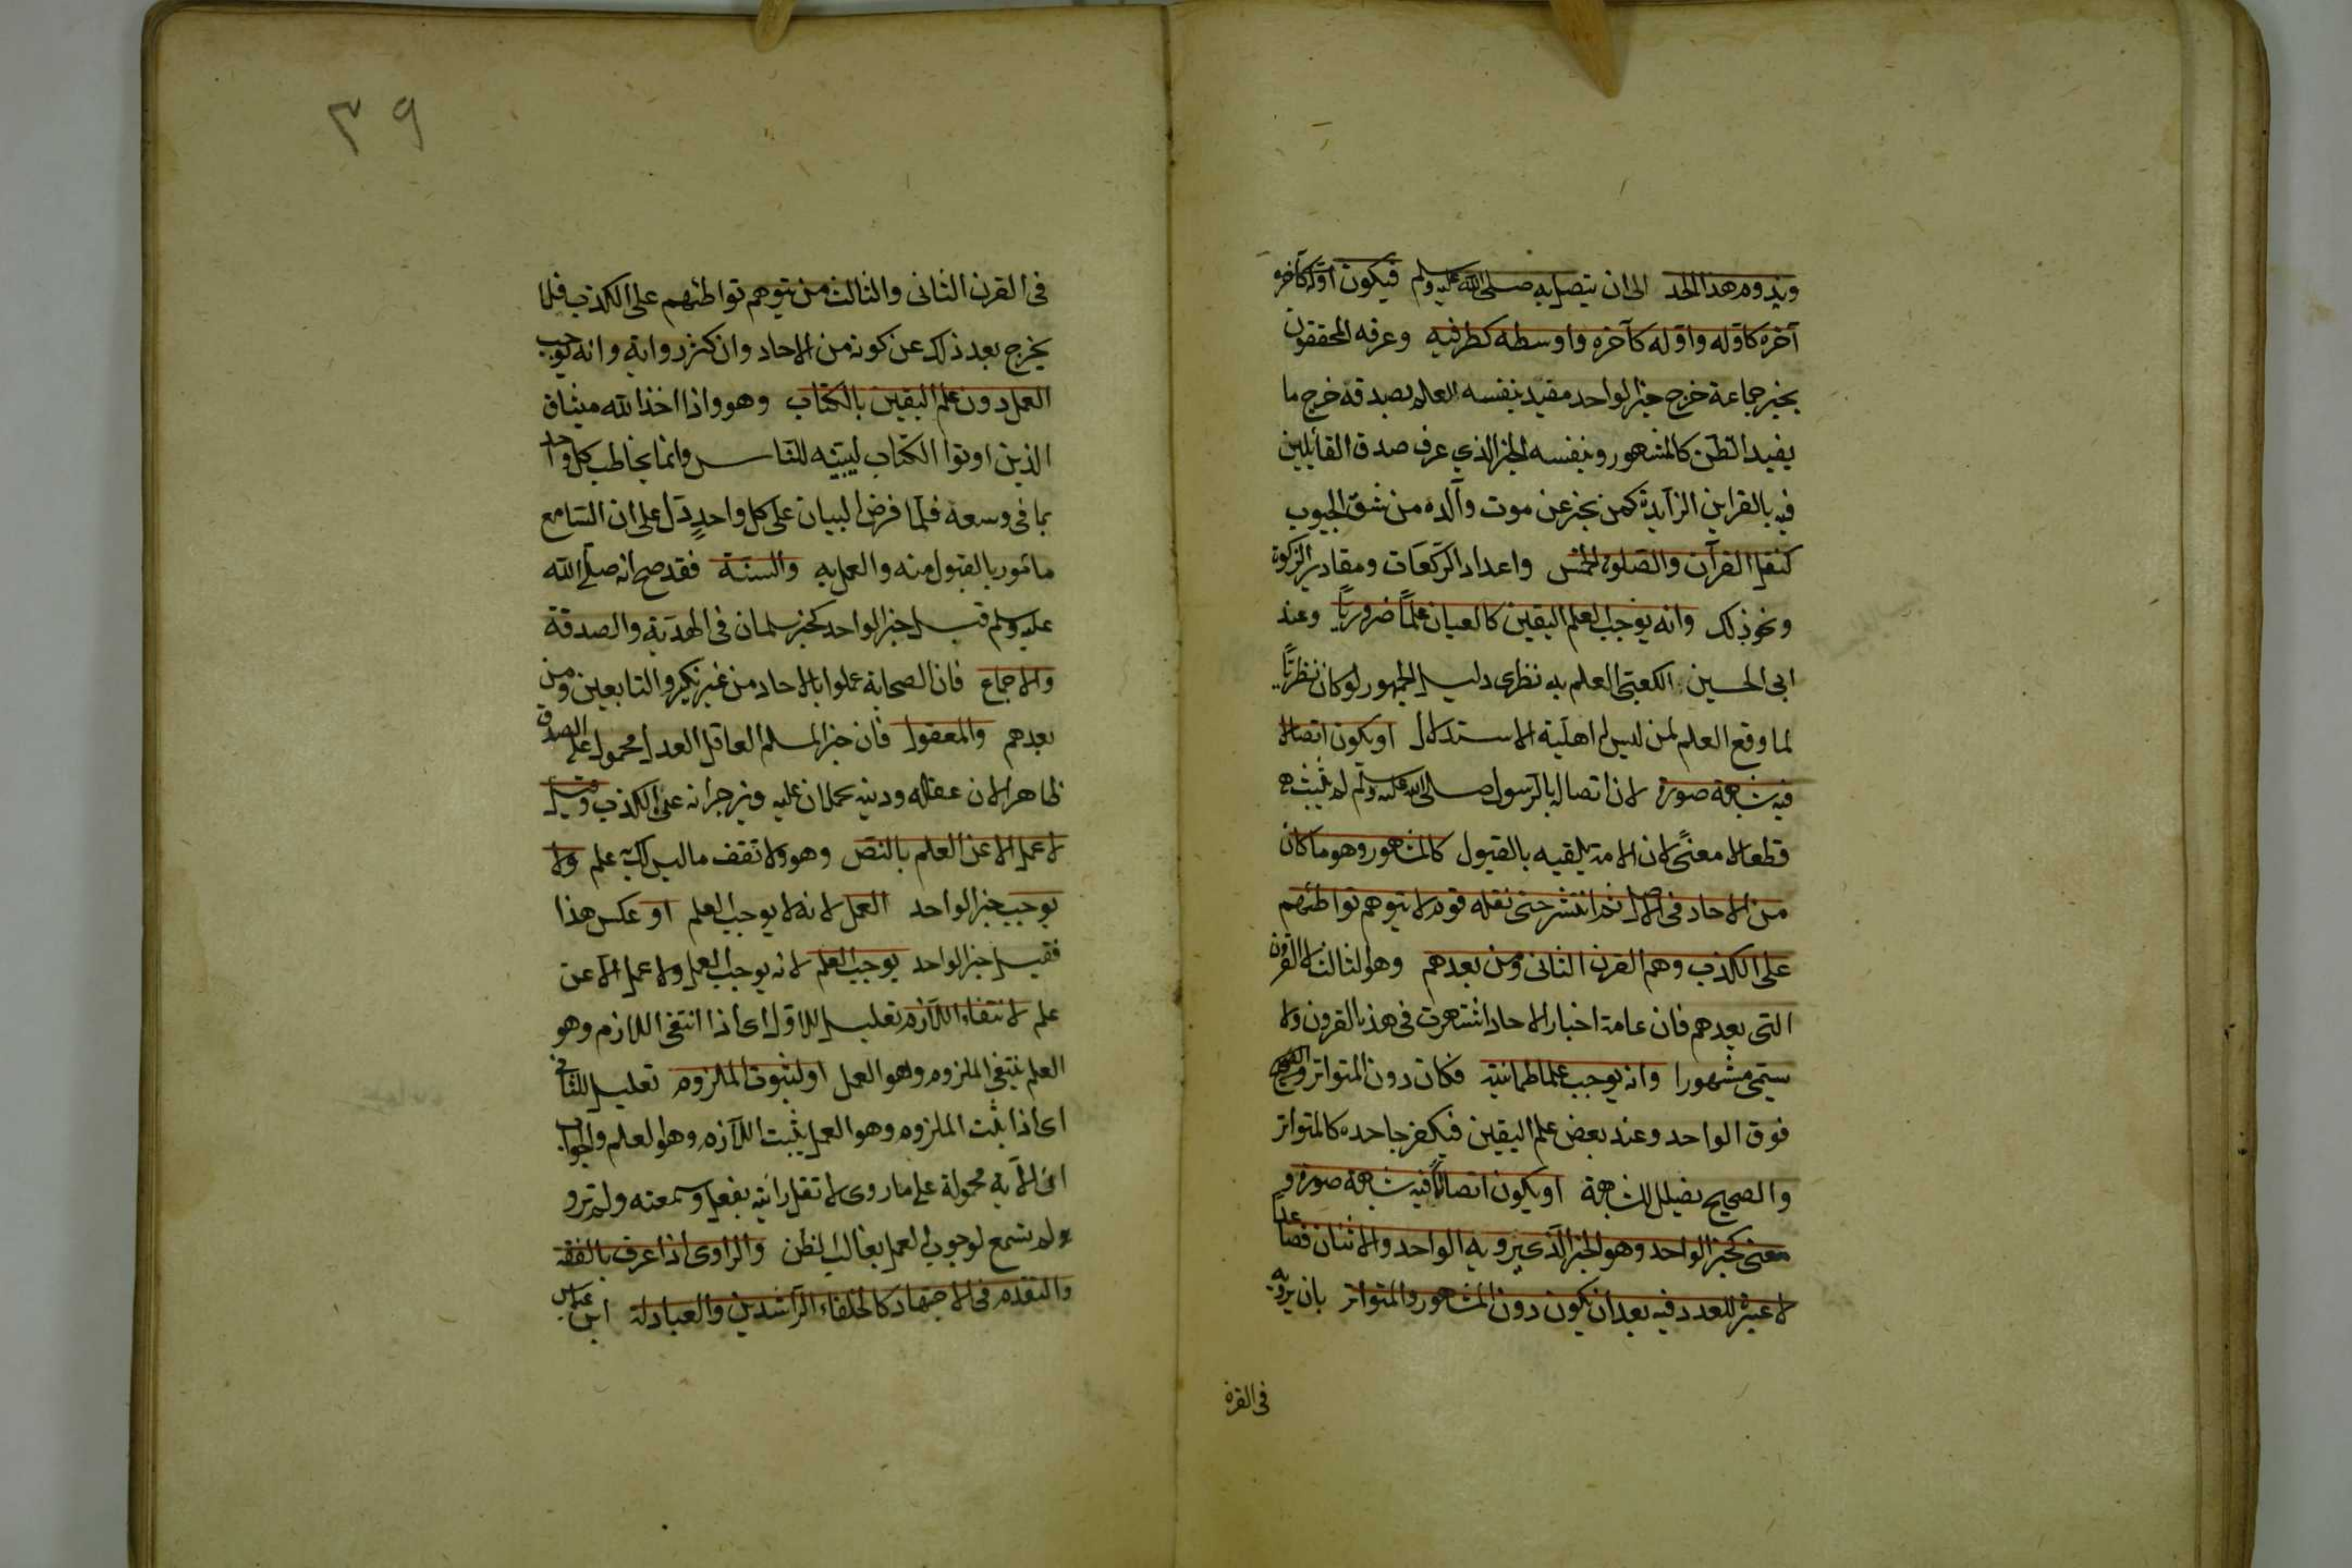 ويدوم هذا الحد الى ان يتصل به صلى الله عليه وسلم فيكون اوله كآخره
آخره كاوله واوله كآخره واوسطه كطرفيه وعرفه المحققون
بخبر جماعة خرج خبر الواحد مفيد بنفسه العلم بصدقه خرج ما
يفيد الظن كالمشهور وبنفسه الخبر الذي عرف صدق القائلين
فيه بالقراين الزايدة كمن يخبر عن موت والده من شق الجيوب
كنقل القرآن والصلوة الخمس واعداد الركعات ومقادير الزكوة
ونحو ذلك وانه يوجب العلم اليقين كالعيان علما ضروريا وعند
ابى الحسين الكعبى العلم به نظرى دليل الجمهور لو كان نظريا
لما وقع العلم لمن ليس له اهلية الاستدلال او يكون اتصالا
فيه شبهة صورة لان اتصاله بالرسول صلى الله عليه وسلم لم يثبت
قطعا لا معنى لان الامة تلقيه بالقبول كالمشهور وهو ما كان
من الاحاد فى الاصل ثم انتشر حتى نقله قوم لا يتوهم تواطئهم
على الكذب وهم القرن الثانى ومن بعدهم وهو الثالث لا القرون
التى بعدهم فان عامة اخبار الاحاد اشتهرت فى هذه القرون ولا
يسمى مشهورا وانه يوجب علم اطمانينة فكان دون المتواتر
فوق الواحد وعند بعض علم اليقين فيكفر جاحده كالمتواتر
والصحيح يضلل للشبهة او يكون اتصالا فيه شبهة صورة و
معنى كخبر الواحد وهو الخبر الذى يرويه الواحد والاثنان فصاعدا
لا عبرة للعدد فيه بعد ان يكون دون المشهور والمتواتر بان يرويه
فى القرن
٣٩
فى القرن الثانى والثالث من يتوهم تواطئهم على الكذب فلا
يخرج بعد ذلك عن كونه من الاحاد وان كثر رواية وانه يوجب
العمل دون علم اليقين بالكتاب وهو واذا اخذ الله ميثاق
الذين اوتوا الكتاب ليبينه للناس وانما يخاطب كل واحد
بما فى وسعه فلما فرض البيان على كل واحد دل على ان السامع
مأمور بالقبول منه والعمل به والسنة فقد صح انه صلى الله
عليه وسلم قبل خبر الواحد كخبر سلمان فى الهدية والصدقة
والاجماع فان الصحابة عملوا بالاحاد من غير نكير والتابعين ومن
بعدهم والمعقول فان خبر المسلم العاقل العدل محمول على الصدق
ظاهرا لان عقله ودينه يحملان عليه ويزجرانه عن الكذب وقيل
لا عمل الا عن العلم بالنص وهو ولا تقف ما ليس لك به علم ولا
يوجب خبر الواحد العمل لانه لا يوجب العلم او عكس هذا
فقيل خبر الواحد يوجب العلم لانه يوجب العمل ولا عمل الا عن
علم لانتفاء اللازم تعليل للاول اى اذا انتفى اللازم وهو
العلم ينتفى الملزوم وهو العمل او لثبوت الملزوم تعليل للثانى
اى اذا ثبت الملزوم وهو العمل يثبت اللازم وهو العلم والجواب
ان الآية محمولة على ما روى لا تقل رأيته بفعل وسمعته ولم تر و
ولم تسمع لوجوب العمل بغالب الظن والراوى اذا عرف بالفقه
والتقدم فى الاجتهاد كالخلفاء الراشدين والعبادلة ابن عباس